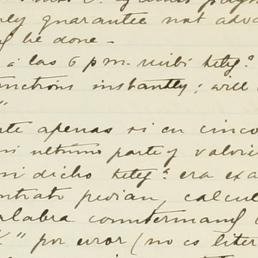 guarantee not adva
be done.–
á las 6 p.m. recibí teleg.ª
nctions instantly; will
"
te apenas si en cinco
mi último parte y valorie
si dicho teleg.ª era exa
ntrato pedían, calcul
alabra countermand
" por error (no es liter